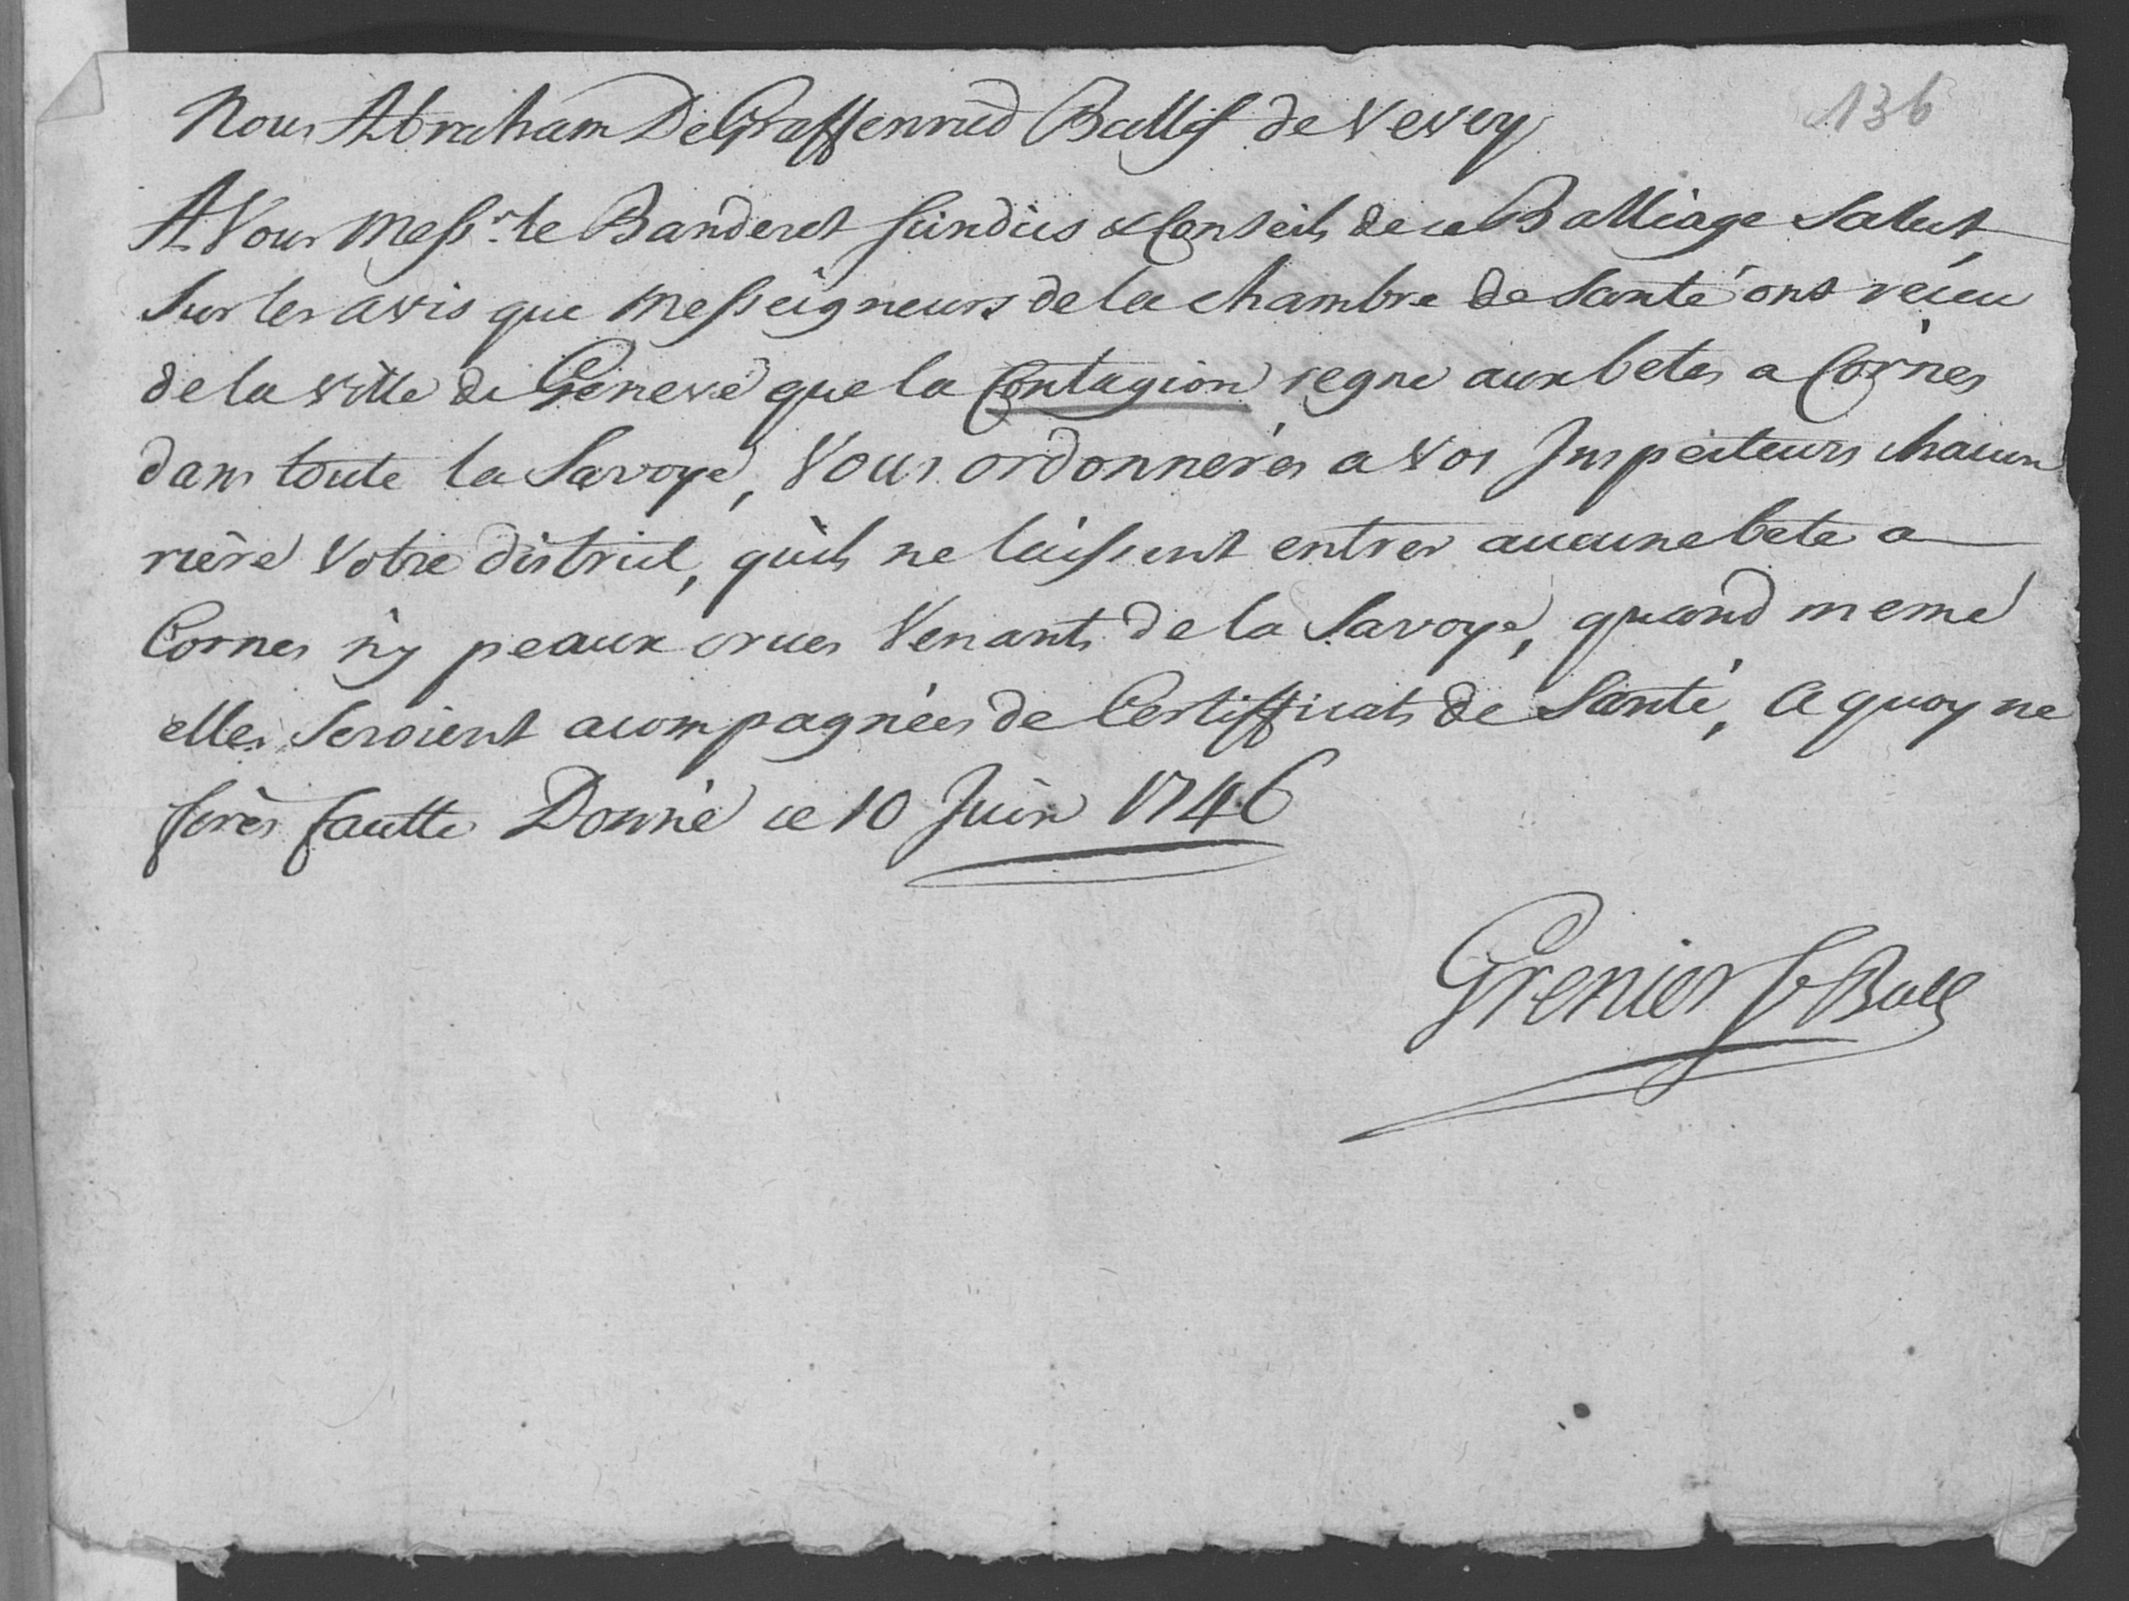 136
Nous Abraham DeGraffenried Ballif de Vevey
A Vous Mess.rs le Banderet Sindics & Conseils de ce Balliage Salut,
Sur les avis que Messeigneurs de la Chambre de Santé ont réceu
de la Ville de Geneve que la Contagion regne aux betes a Cornes
dans toute la Savoye, Vous ordonnerés a vos Inspecteurs chacun
riére Votre district, qu'ils ne laissent entrer aucune bete a
Cornes n'y peaux crues Venants de la Savoye, quand meme
elles seroient acompagnées de Certifficats de Santé, A quoy ne
ferés fautte Donné ce 10 Juin 1746
Grenier S Ball